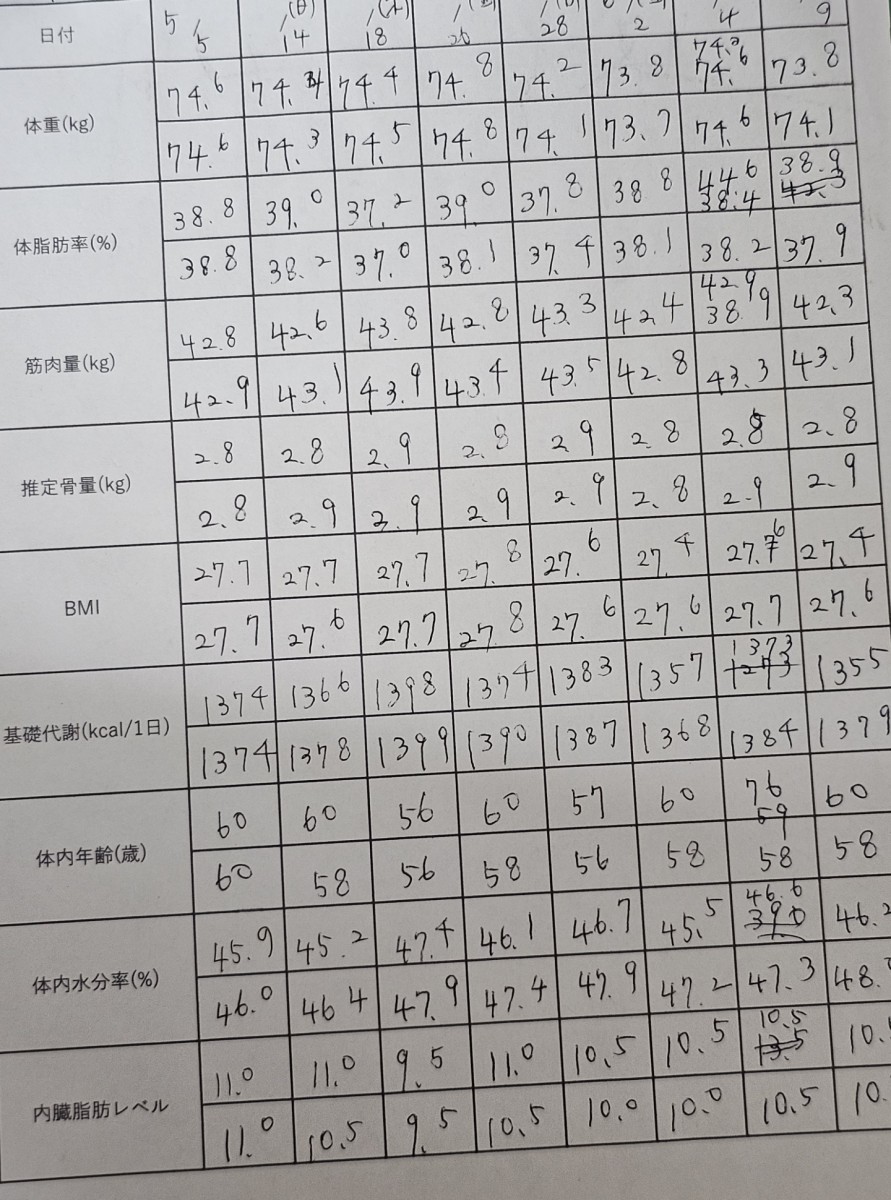 日付 5/5 /(日)14 /18 /26 /28 /2 4 9
体重(kg)
74.6 74.3 74.4 74.8 74.2 73.8 74.6 73.8
74.6 74.3 74.5 74.8 74.1 73.7 74.6 74.1
体脂肪率(%)
38.8 39.0 37.2 39.0 37.8 38.8 44.6 38.4 38.9 42.3
38.8 38.2 37.0 38.1 37.4 38.1 38.2 37.9
筋肉量(kg)
42.8 42.6 43.8 42.8 43.3 42.4 42.9 38.9 42.3
42.9 43.1 43.9 43.4 43.5 42.8 43.3 43.1
推定骨量(kg)
2.8 2.8 2.9 2.8 2.9 2.8 2.8 2.8
2.8 2.9 2.9 2.9 2.9 2.8 2.9 2.9
BMI
27.7 27.7 27.7 27.8 27.6 27.4 27.6 27.4
27.7 27.6 27.7 27.8 27.6 27.6 27.7 27.6
基礎代謝(kcal/1日)
1374 1366 1398 1374 1383 1357 1373 1273 1355
1374 1378 1399 1390 1387 1368 1384 1379
体内年齢(歳)
60 60 56 60 57 60 76 59 60
60 58 56 58 56 58 58 58
体内水分率(%)
45.9 45.2 47.4 46.1 46.7 45.5 46.6 39.0 46.2
46.0 46.4 47.9 47.4 47.9 47.2 47.3 48.
内臓脂肪レベル
11.0 11.0 9.5 11.0 10.5 10.5 10.5 13.5 10.
11.0 10.5 9.5 10.5 10.0 10.0 10.5 10.